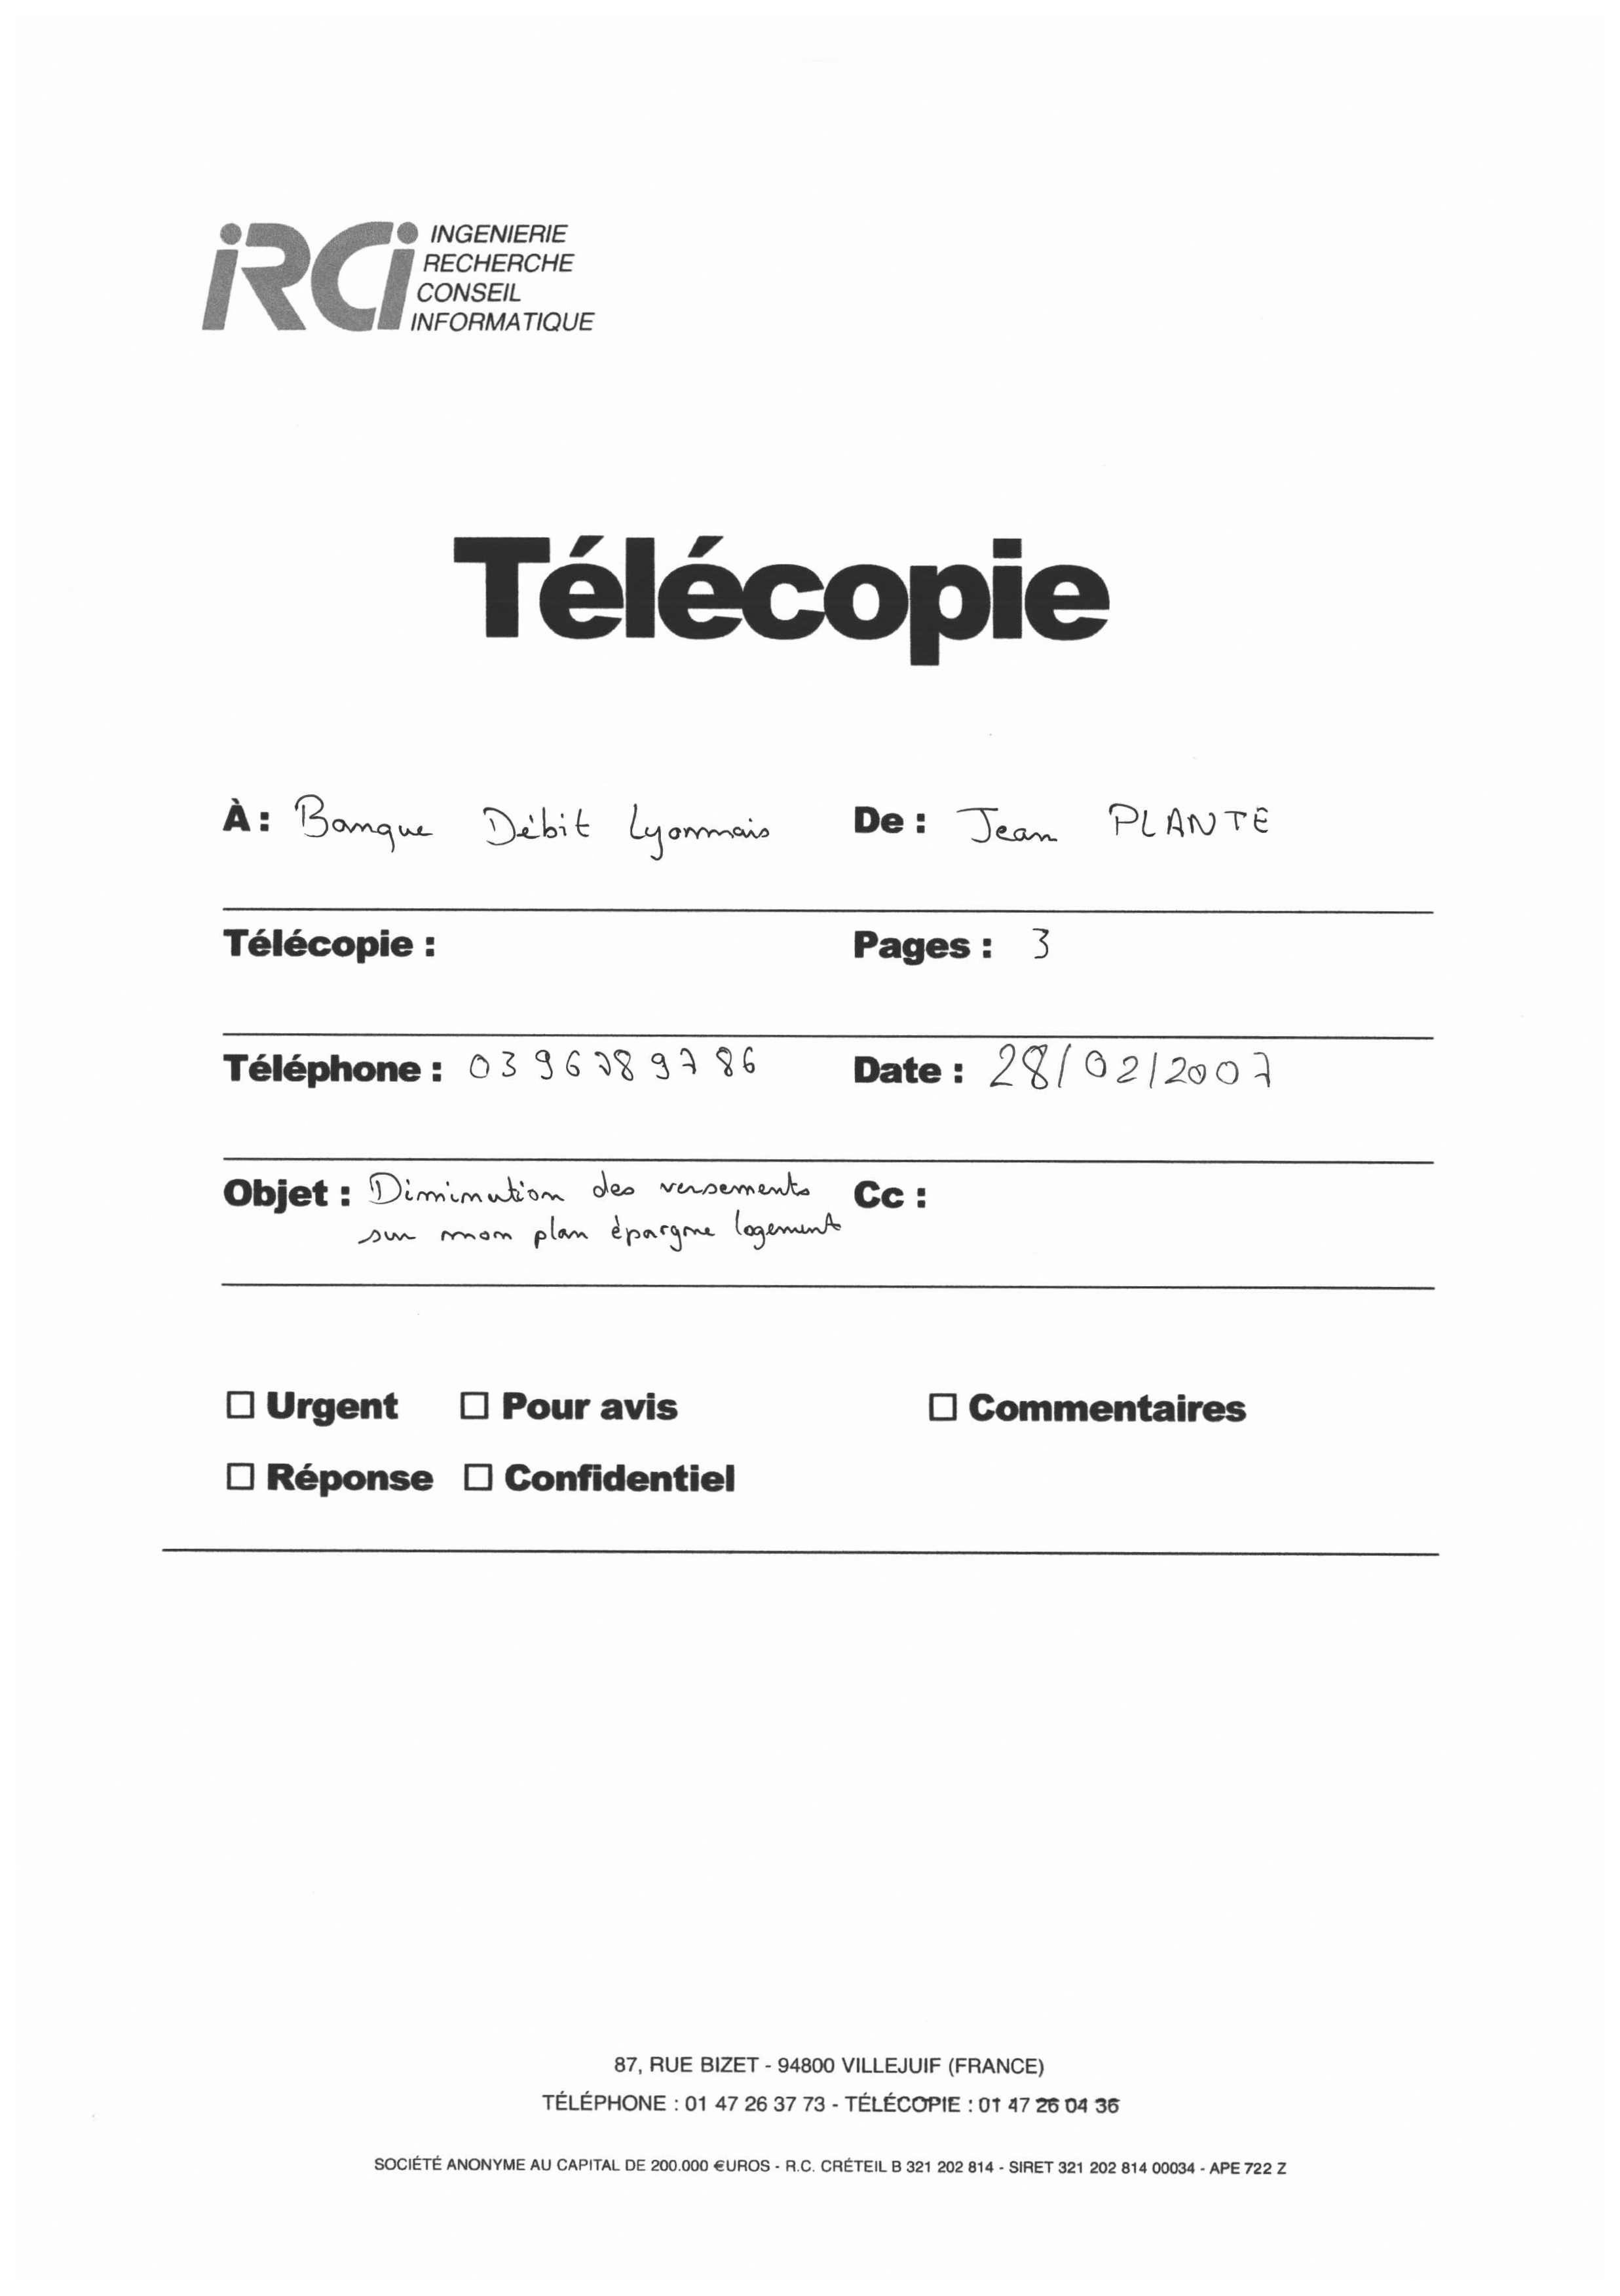 iRCi INGENIERIE
RECHERCHE
CONSEIL
INFORMATIQUE
Télécopie
À : Banque Débit Lyonnais De : Jean PLANTE
Télécopie : Pages : 3
Téléphone : 03 96 78 97 86 Date : 28/02/2007
Objet : Diminution des versements Cc :
sur mon plan épargne logement
☐ Urgent ☐ Pour avis ☐ Commentaires
☐ Réponse ☐ Confidentiel
87, RUE BIZET - 94800 VILLEJUIF (FRANCE)
TÉLÉPHONE : 01 47 26 37 73 - TÉLÉCOPIE : 01 47 26 04 36
SOCIÉTÉ ANONYME AU CAPITAL DE 200.000 €UROS - R.C. CRÉTEIL B 321 202 814 - SIRET 321 202 814 00034 - APE 722 Z